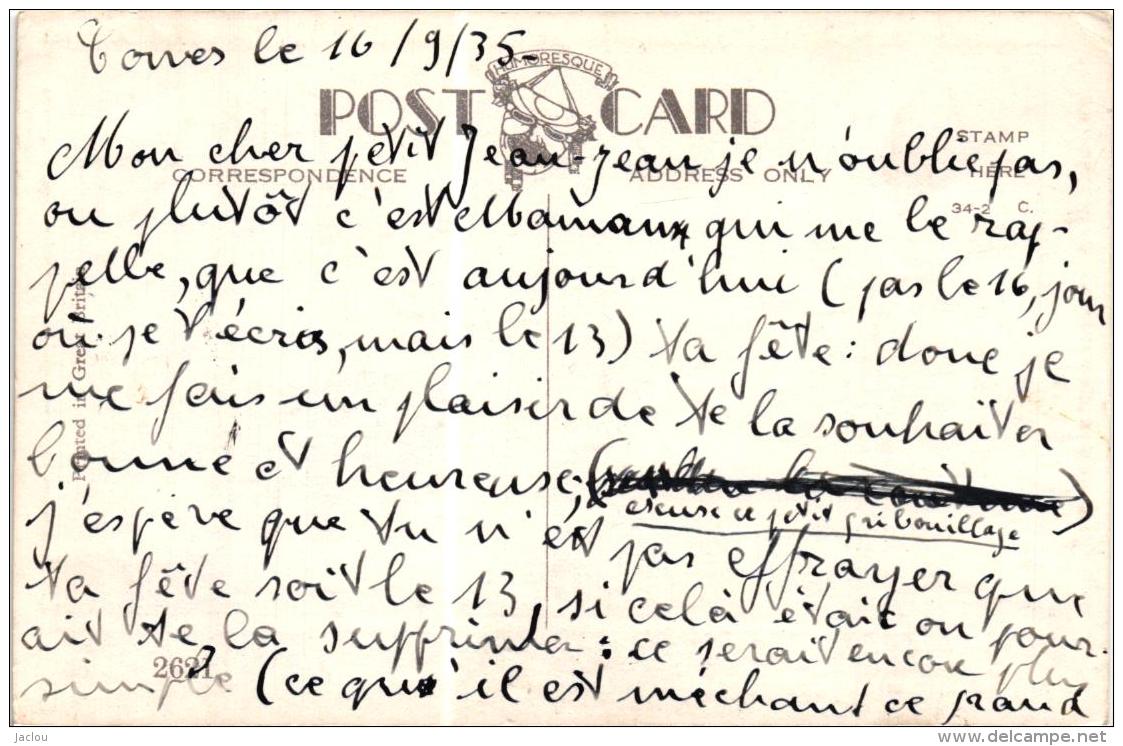 le 16/9/35
HUMORESQUE
POST CARD
Mon cher petit Jean-Jean je n'oublie pas,
STAMP
HERE
CORRESPONDENCE
ADDRESS ONLY
34-2 C.
ou plutôt c'est Maman qui me le rap-
pelle, que c'est aujourd'hui (pas le 16, jour
où je t'écris, mais le 13) ta fête : donc je
me fais un plaisir de te la souhaiter
bonne et heureuse,
escuse ce petit gribouillage
j'espère que tu n'es pas effrayer que
ta fête soit le 13, si celà était on pour-
ait te la supprimer : ce serait encore plus
simple (ce qu'il est méchant ce grand
Printed in Great Britain
2621
jaclou
www.delcampe.net